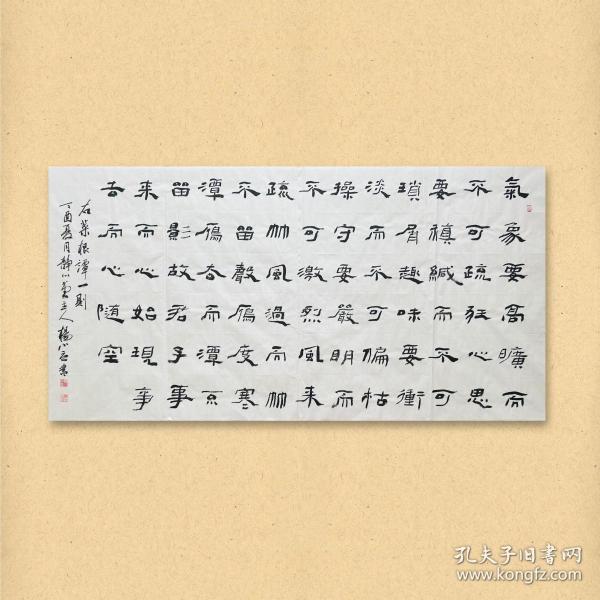 氣象要高曠而
不可疏狂心思
要縝緘而不可
瑣屑趣味要衝
淡而不可偏枯
操守要嚴明而
不可激烈風来
疏竹風過而竹
不留聲鴈度寒
潭鴈去而潭不
留影故君子事
来而心始現事
去而心随空
右菜根譚一則
丁酉夏月静心堂主人楊書
孔夫子旧書网
www.kongfz.com